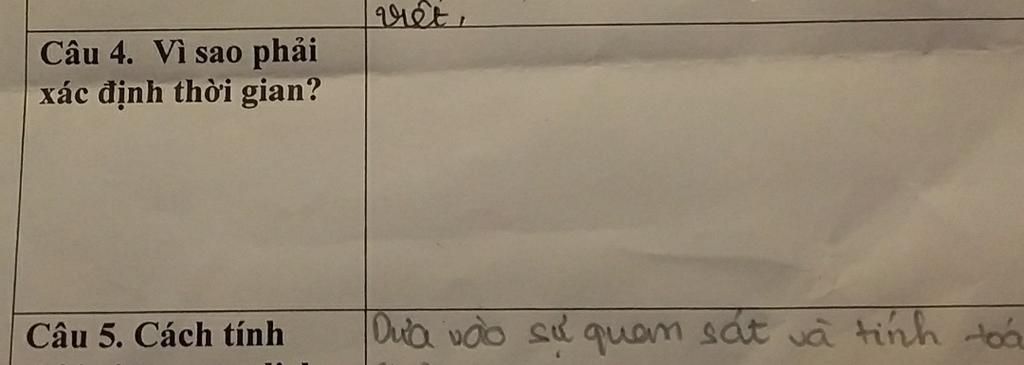 viết,
Câu 4. Vì sao phải
xác định thời gian?
Câu 5. Cách tính
Dựa vào sự quan sát và tính toá